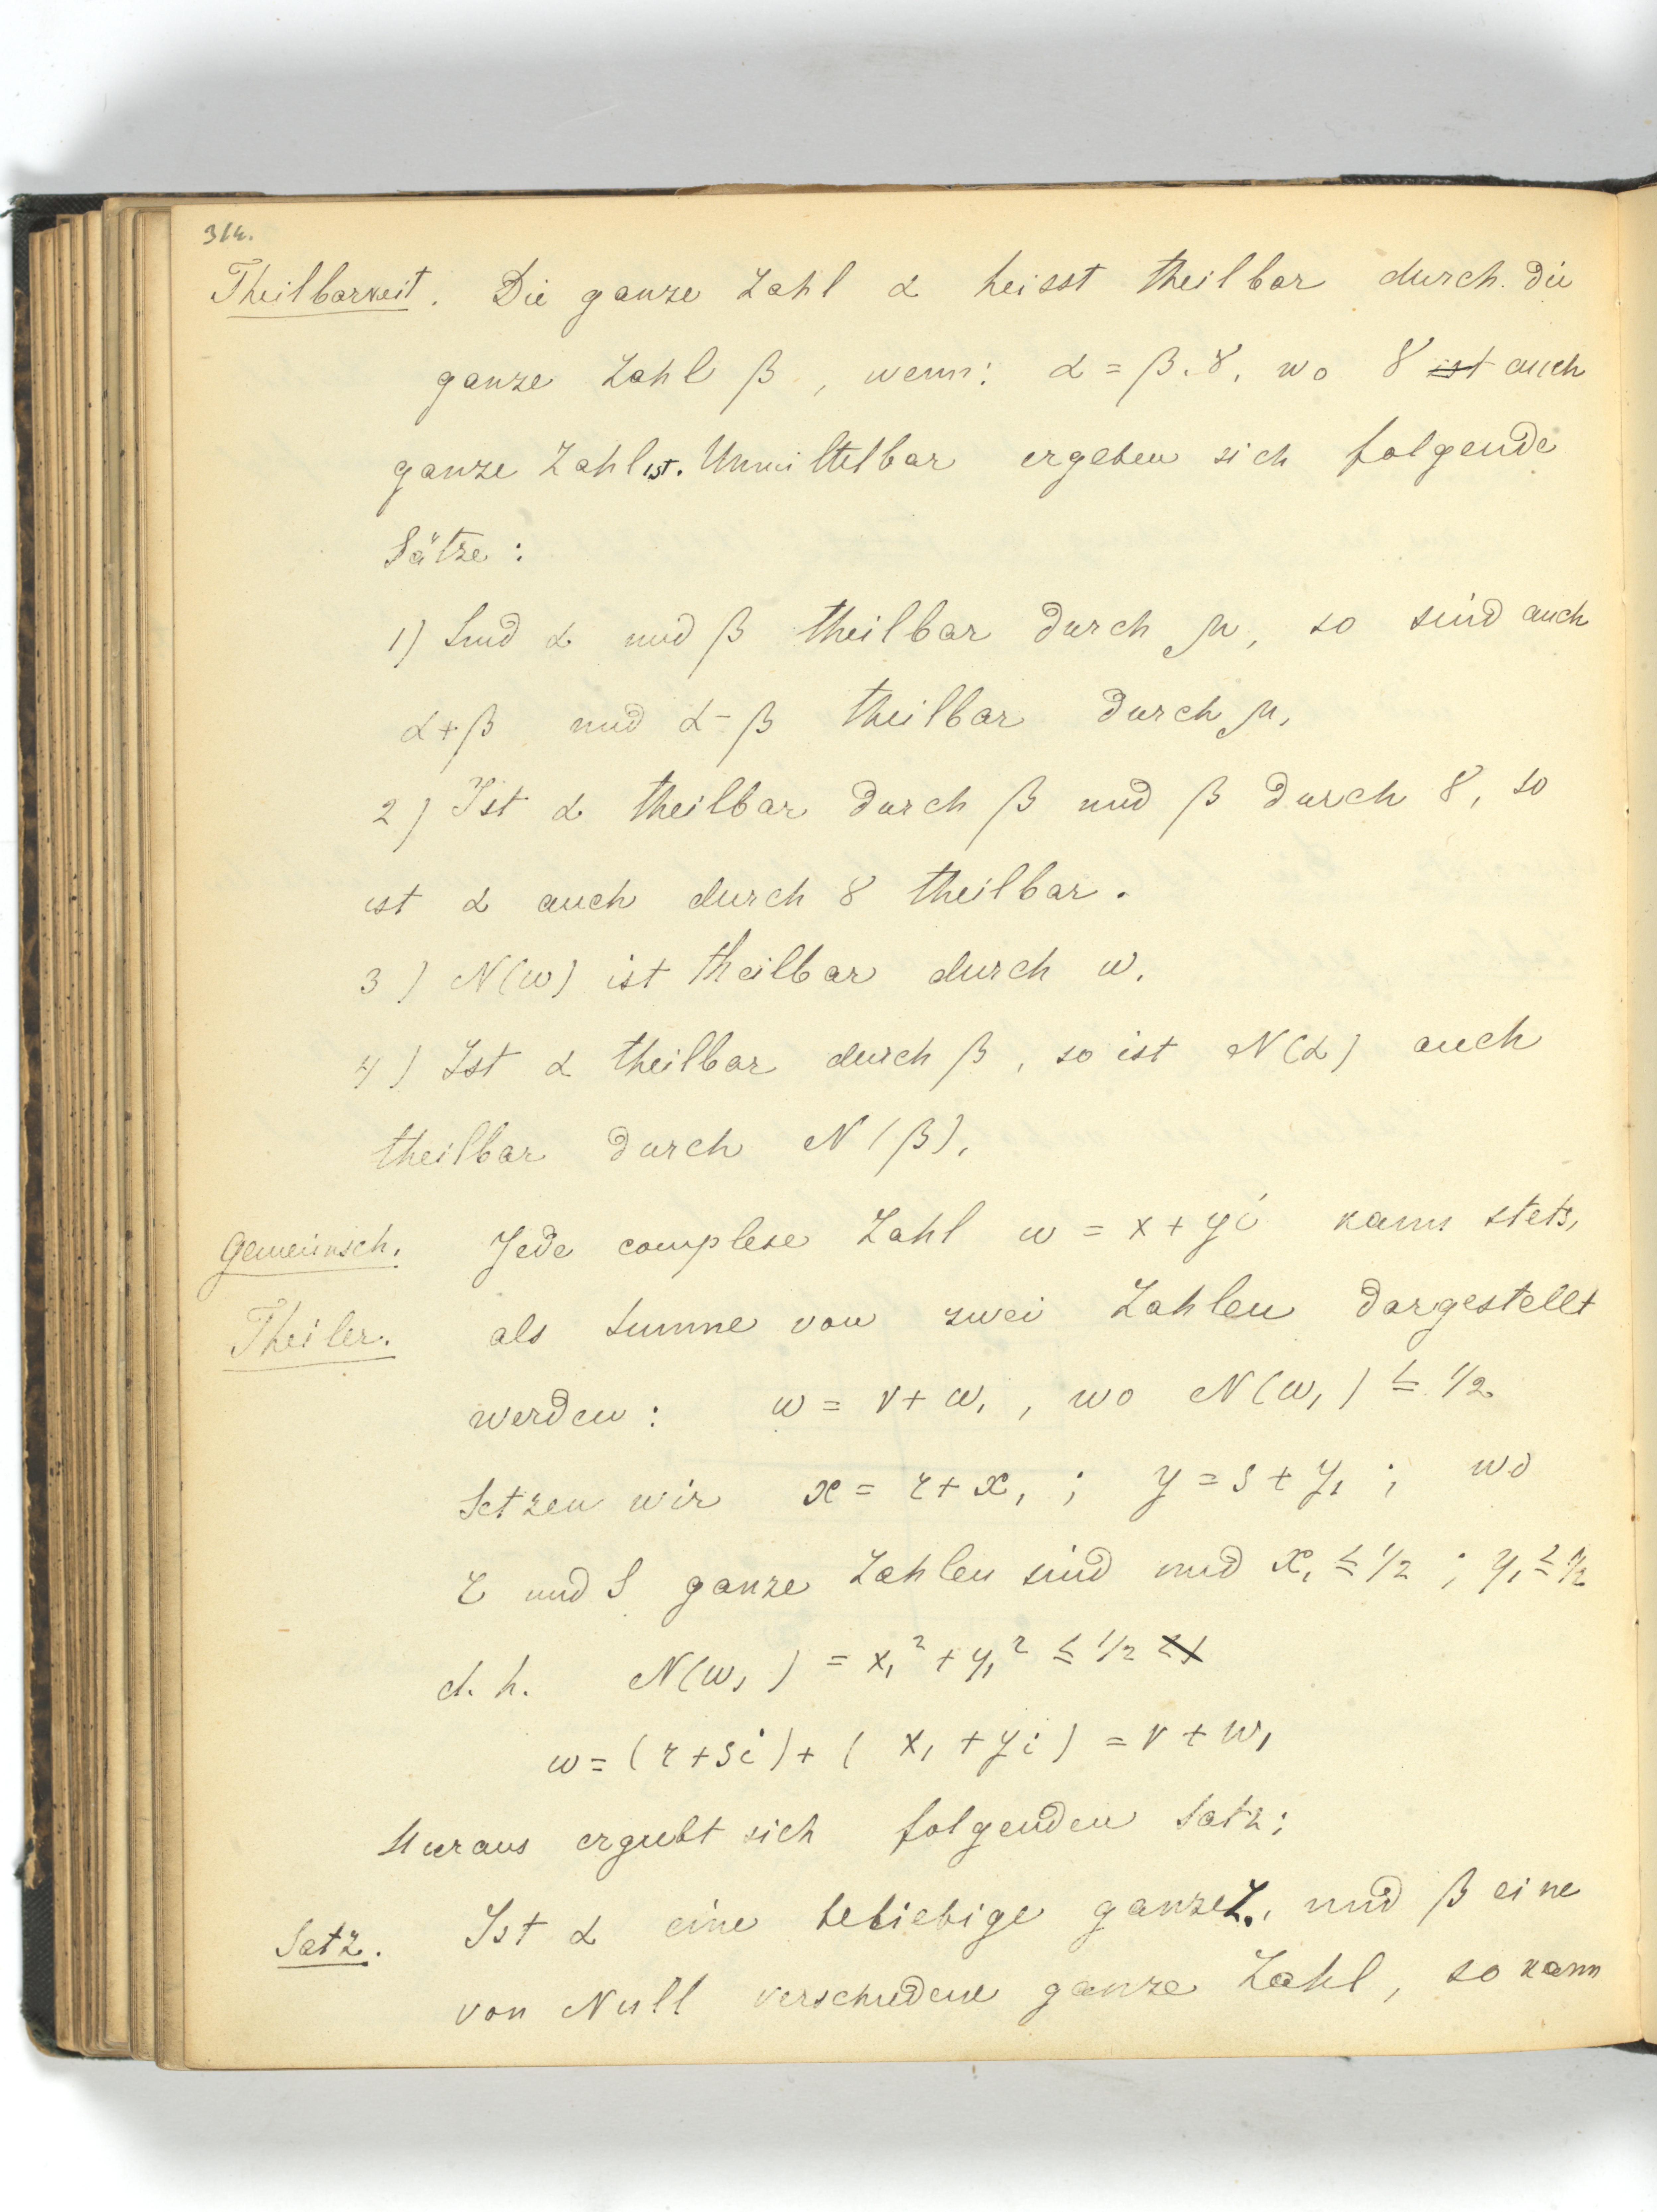 314.
Theilbarkeit. Die ganze Zahl α heisst theilbar durch die
ganze Zahl β, wenn: α = β.γ, wo γ ist auch
ganze Zahl ist. Unmittelbar ergeben sich folgende
Sätze:
1) Sind α und β theilbar durch μ, so sind auch
α+β und α-β theilbar durch μ,
2) Ist α theilbar durch β und β durch γ, so
ist α auch durch γ theilbar.
3) N(ω) ist theilbar durch ω.
4) Ist α theilbar durch β, so ist N(α) auch
theilbar durch N(β),
Gemeinsch. Jede complexe Zahl ω = x + yi kann stets,
Theiler. als Summe von zwei Zahlen dargestellt
werden: ω = ν + ω₁, wo N(ω₁) ≤ 1/2
Setzen wir x = r + x₁ ; y = s + y₁ ; wo
r und s ganze Zahlen sind und x₁ ≤ 1/2 ; y₁ ≤ 1/2
d. h. N(ω₁) = x₁² + y₁² ≤ 1/2 < 1
ω = (r + si) + (x₁ + yi) = ν + ω₁
Hieraus ergiebt sich folgenden Satz:
Satz. Ist α eine beliebige ganze Z., und β eine
von Null verschiedene ganze Zahl, so kann